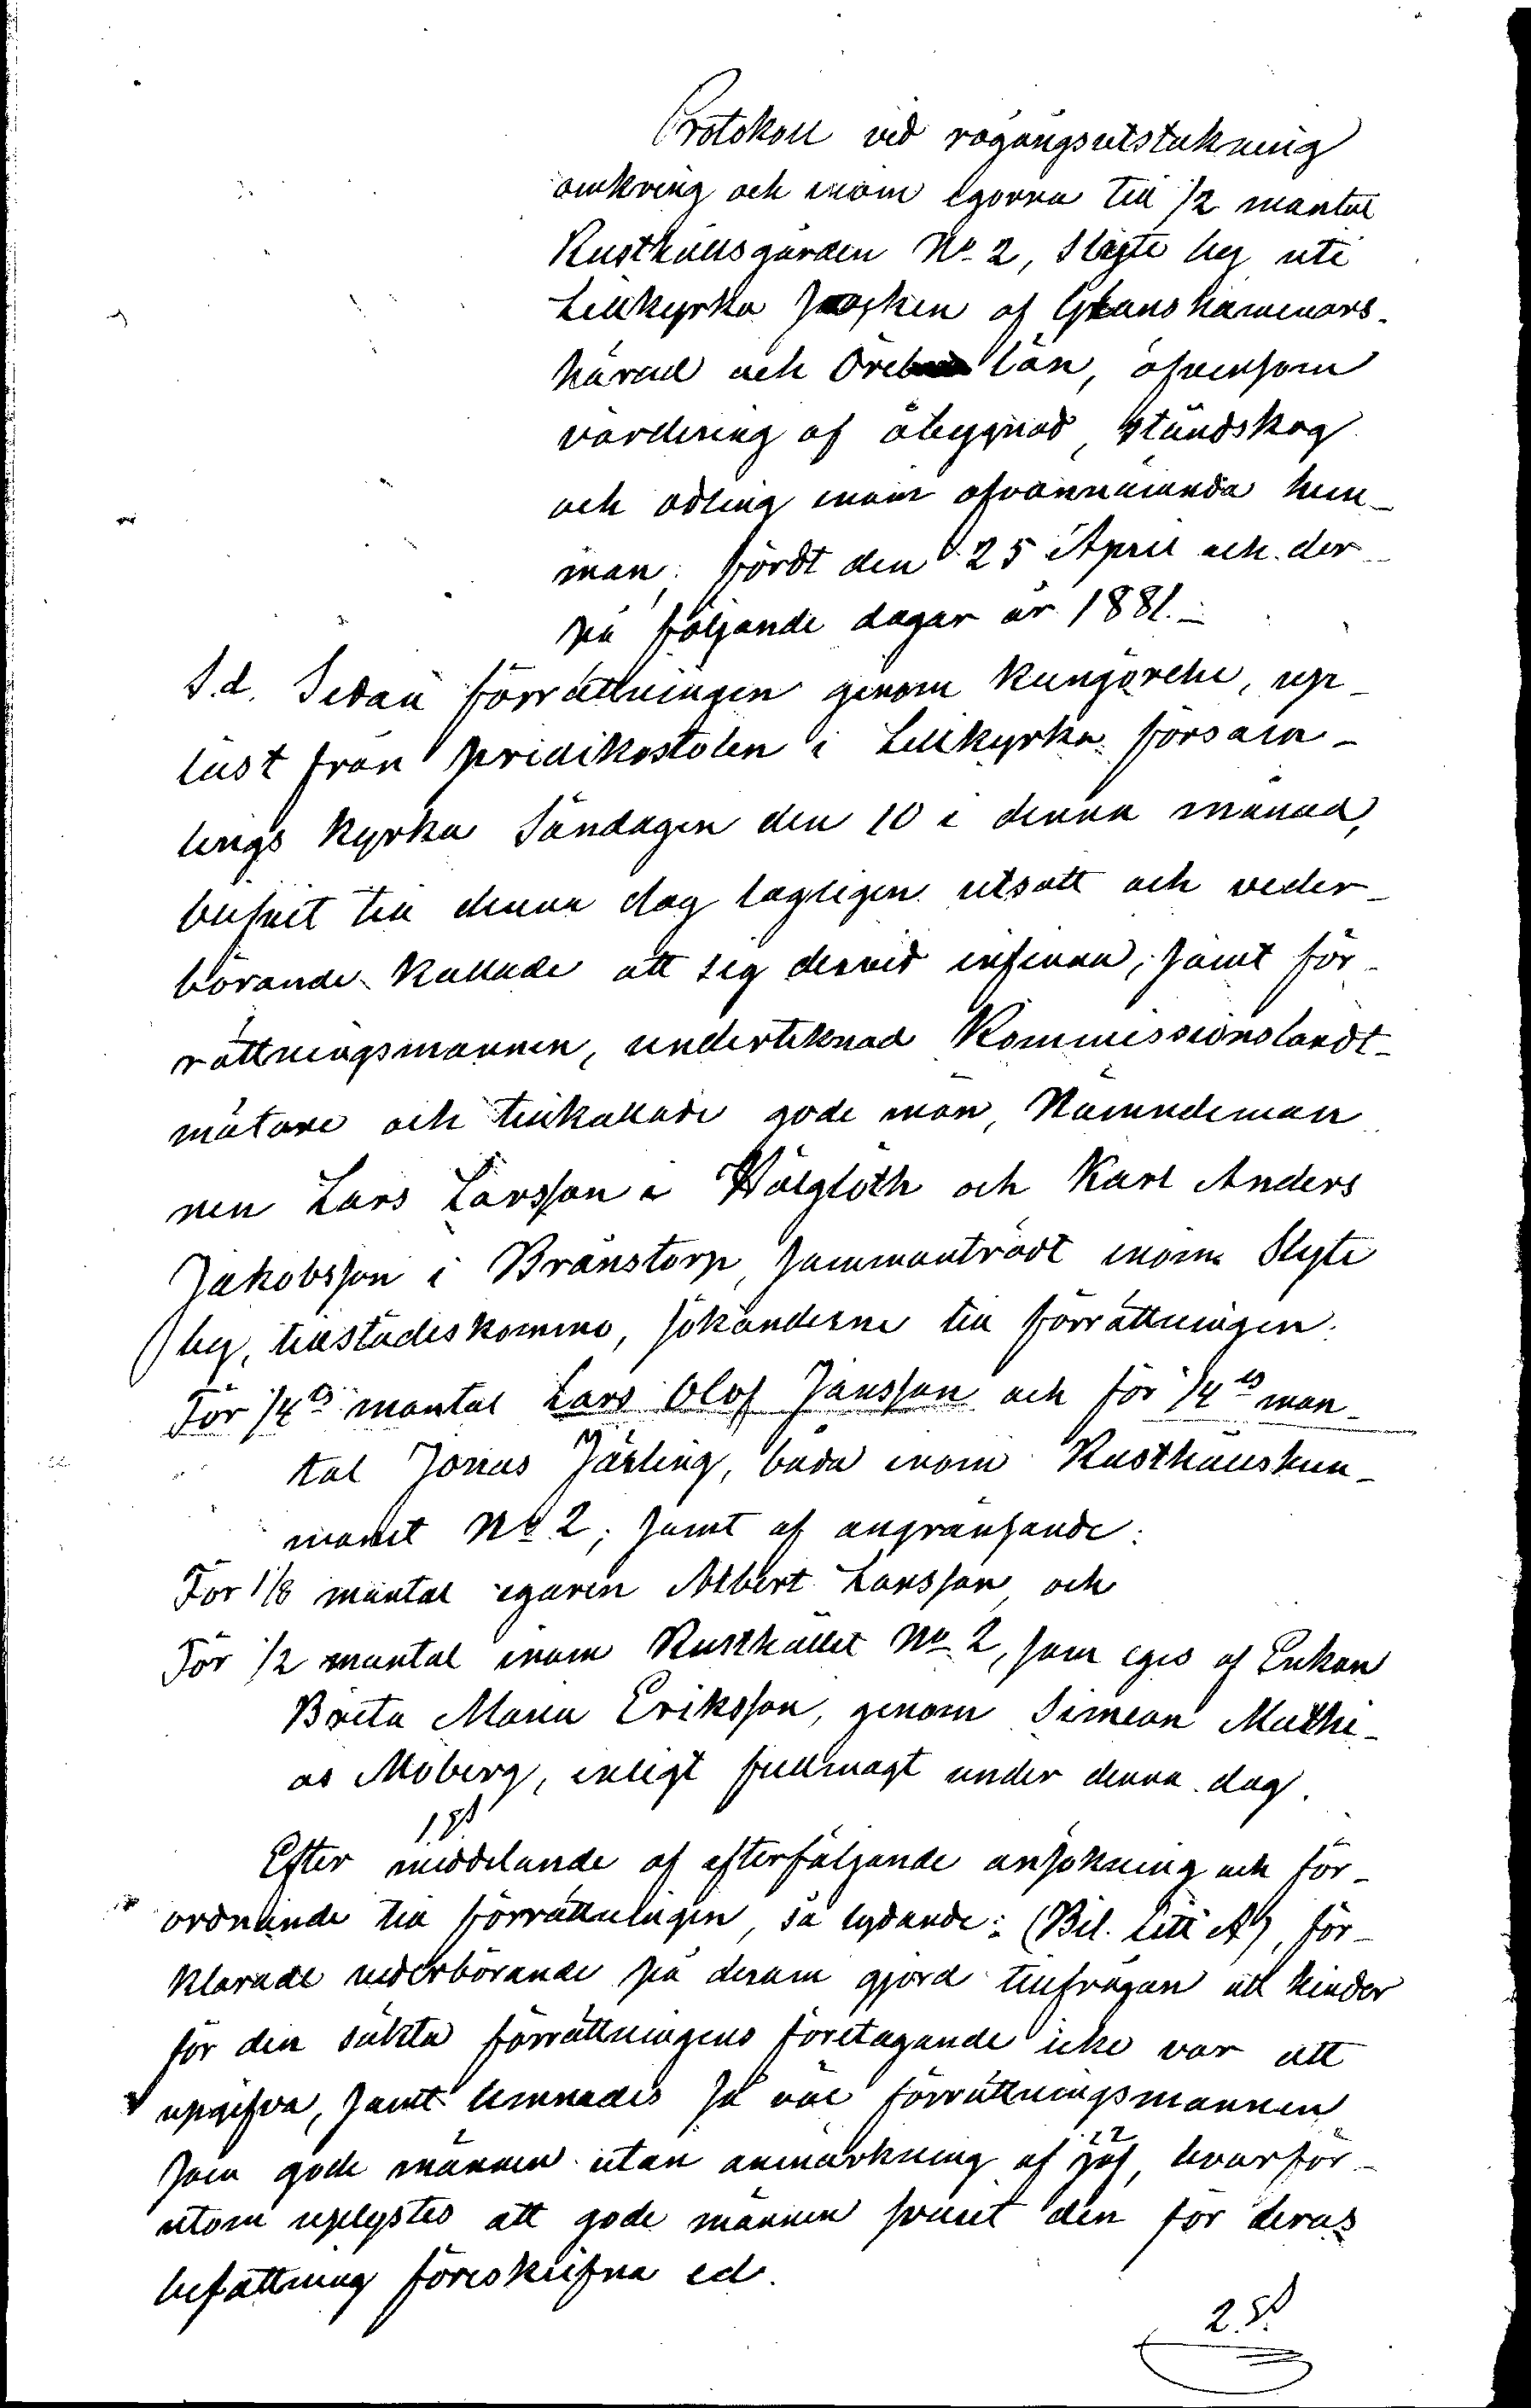 Protokoll vid rågångsutstakning
omkring och inom egorna till 1/2 mantal
Rusthållsgården No 2, Slyte by uti
Lillkyrka socken af Glanshammars-
härad och Örebro län, äfvensom
värdering af åbyggnad, ståndskog
och odling inom ofvannämnda hem-
man; fördt den 25 April och der-
på följande dagar år 1881.
S.d. Sedan förrättningen genom kungörelse, upp-
läst från predikostolen i Lillkyrka försam-
lings kyrka Söndagen den 10 i denna månad,
blifvit till denna dag lagligen utsatt och veder-
börande kallade att sig dervid infinna, samt för-
rättningsmannen, undertecknad Kommissionslandt-
mätare och tillkallade gode män, Nämndemän-
nen Lars Larsson i Hälglöth och Karl Anders
Jakobsson i Bränstorp, sammanträdt inom Slyte
by, tillstädeskommo, sökanderne till förrättningen:
För 1/4 mantal Lars Olof Jansson och för 1/4 man-
tal Jonas Järling, båda inom Rusthållshem-
manet No 2; samt af angränsande:
För 1/8 mantal egaren Albert Larsson och
För 1/2 mantal inom Rusthållet No 2, som eges af Enkan
Brita Maria Eriksson, genom Simeon Mathi-
as Moberg, enligt fullmagt under denna dag.
1 §
Efter meddelande af efterföljande ansökning och för-
ordnande till förrättningen, så lydande: (Bil. Litt A), för-
klarade vederbörande på derom gjord tillfrågan att hinder
för den sökta förrättningens företagande icke var att
uppgifva, samt lemnades så väl förrättningsmannen
som gode männen utan anmärkning af jäf, hvarför-
utom upplystes att gode männen svurit den för deras
befattning föreskrifna ed.
2 §